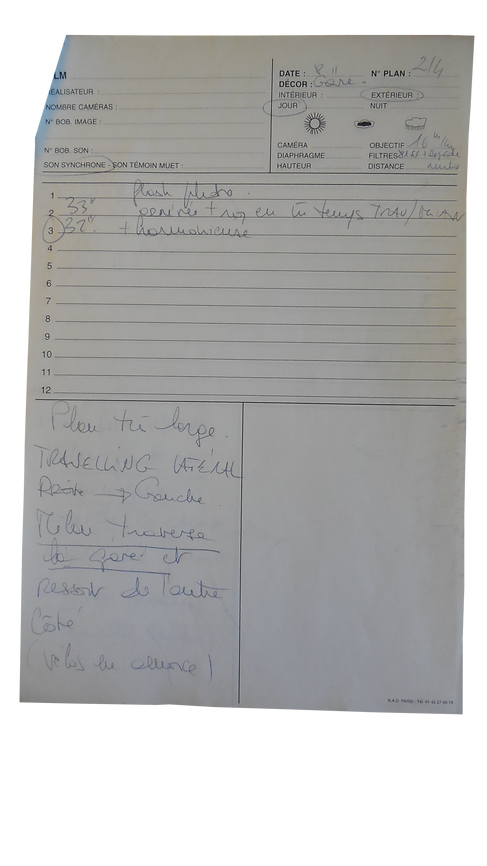 LM
DATE : 8 11 N° PLAN : 2/4
DÉCOR : Gare.
RÉALISATEUR :
INTÉRIEUR : EXTÉRIEUR :
NOMBRE CAMÉRAS :
JOUR NUIT
N° BOB. IMAGE :
CAMÉRA OBJECTIF 16 m/m
N° BOB. SON :
DIAPHRAGME FILTRES
SON SYNCHRONE - SON TÉMOIN MUET :
HAUTEUR DISTANCE
1 flash photo.
2 33" + en temps TRAV/
3 32". + harmonieuse
4
5
6
7
8
9
10
11
12
Plan très large.
TRAVELLING LATÉRAL
Droite → Gauche.
traverse
la gare et
ressort de l'autre
Côté